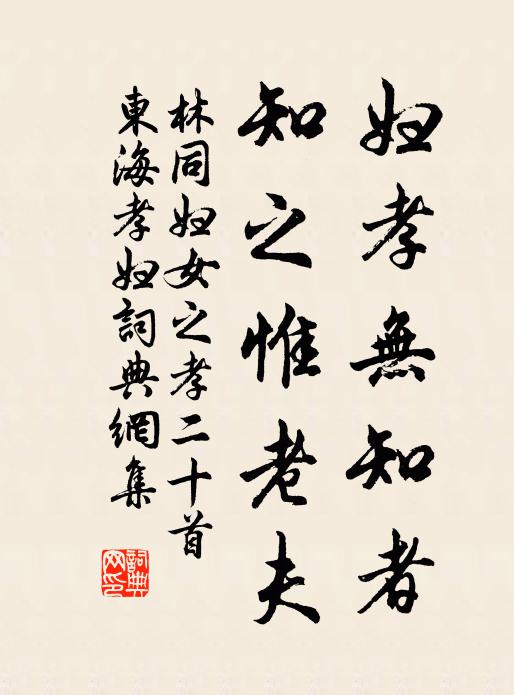 妇孝無知者
知之惟老夫
林同妇女之孝二十首
東海孝妇詞典網集
詞典网印